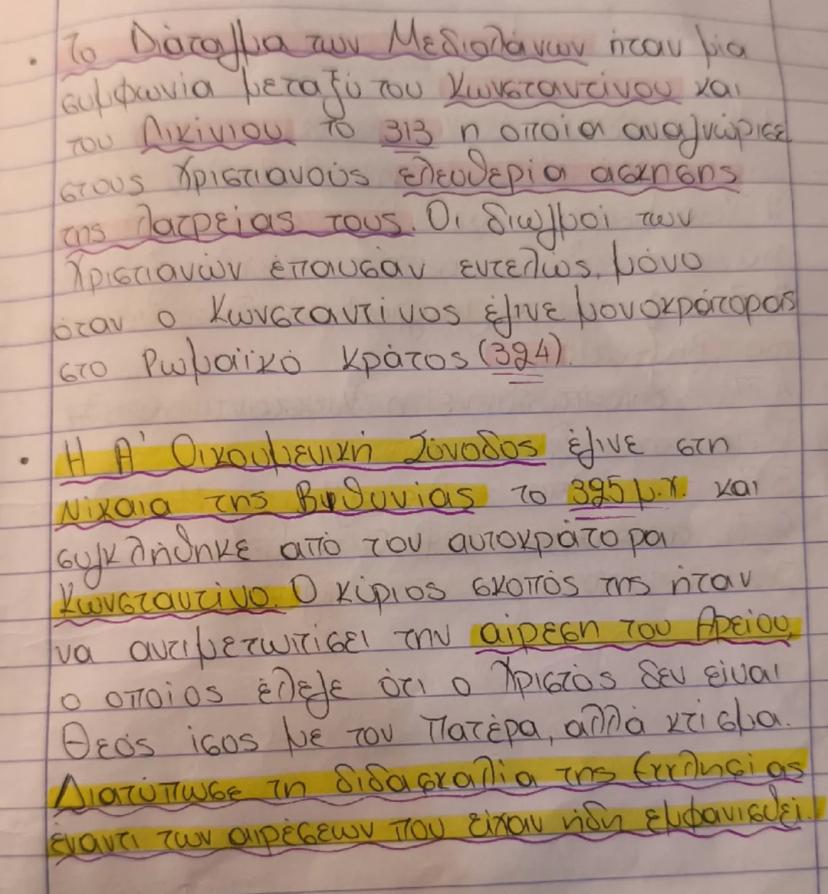 • Το Διάταγμα των Μεδιολάνων ήταν μια
συμφωνία μεταξύ του Κωνσταντίνου και
του Λικίνιου το 313 η οποία αναγνώρισε
στους Χριστιανούς ελευθερία άσκησης
της λατρείας τους. Οι διωγμοί των
Χριστιανών έπαυσαν εντελώς, μόνο
όταν ο Κωνσταντίνος έγινε μονοκράτορας
στο Ρωμαϊκό κράτος (324).
• Η Α' Οικουμενική Σύνοδος έγινε στη
Νίκαια της Βιθυνίας το 325 μ.χ. και
συγκλήθηκε από τον αυτοκράτορα
Κωνσταντίνο. Ο κύριος σκοπός της ήταν
να αντιμετωπίσει την αίρεση του Αρείου,
ο οποίος έλεγε ότι ο Χριστός δεν είναι
Θεός ίσος με τον Πατέρα, αλλά κτίσμα.
Διατύπωσε τη διδασκαλία της Εκκλησίας
έναντι των αιρέσεων που είχαν ήδη εμφανισθεί.